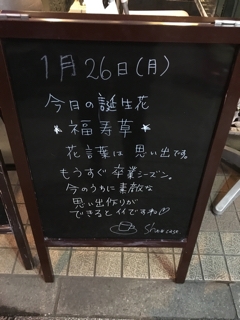 1月26日(月)
今日の誕生花
*福寿草*
花言葉は 思い出です。
もうすぐ 卒業シーズン。
今のうちに 素敵な
思い出作りが
できるとイイですね♡